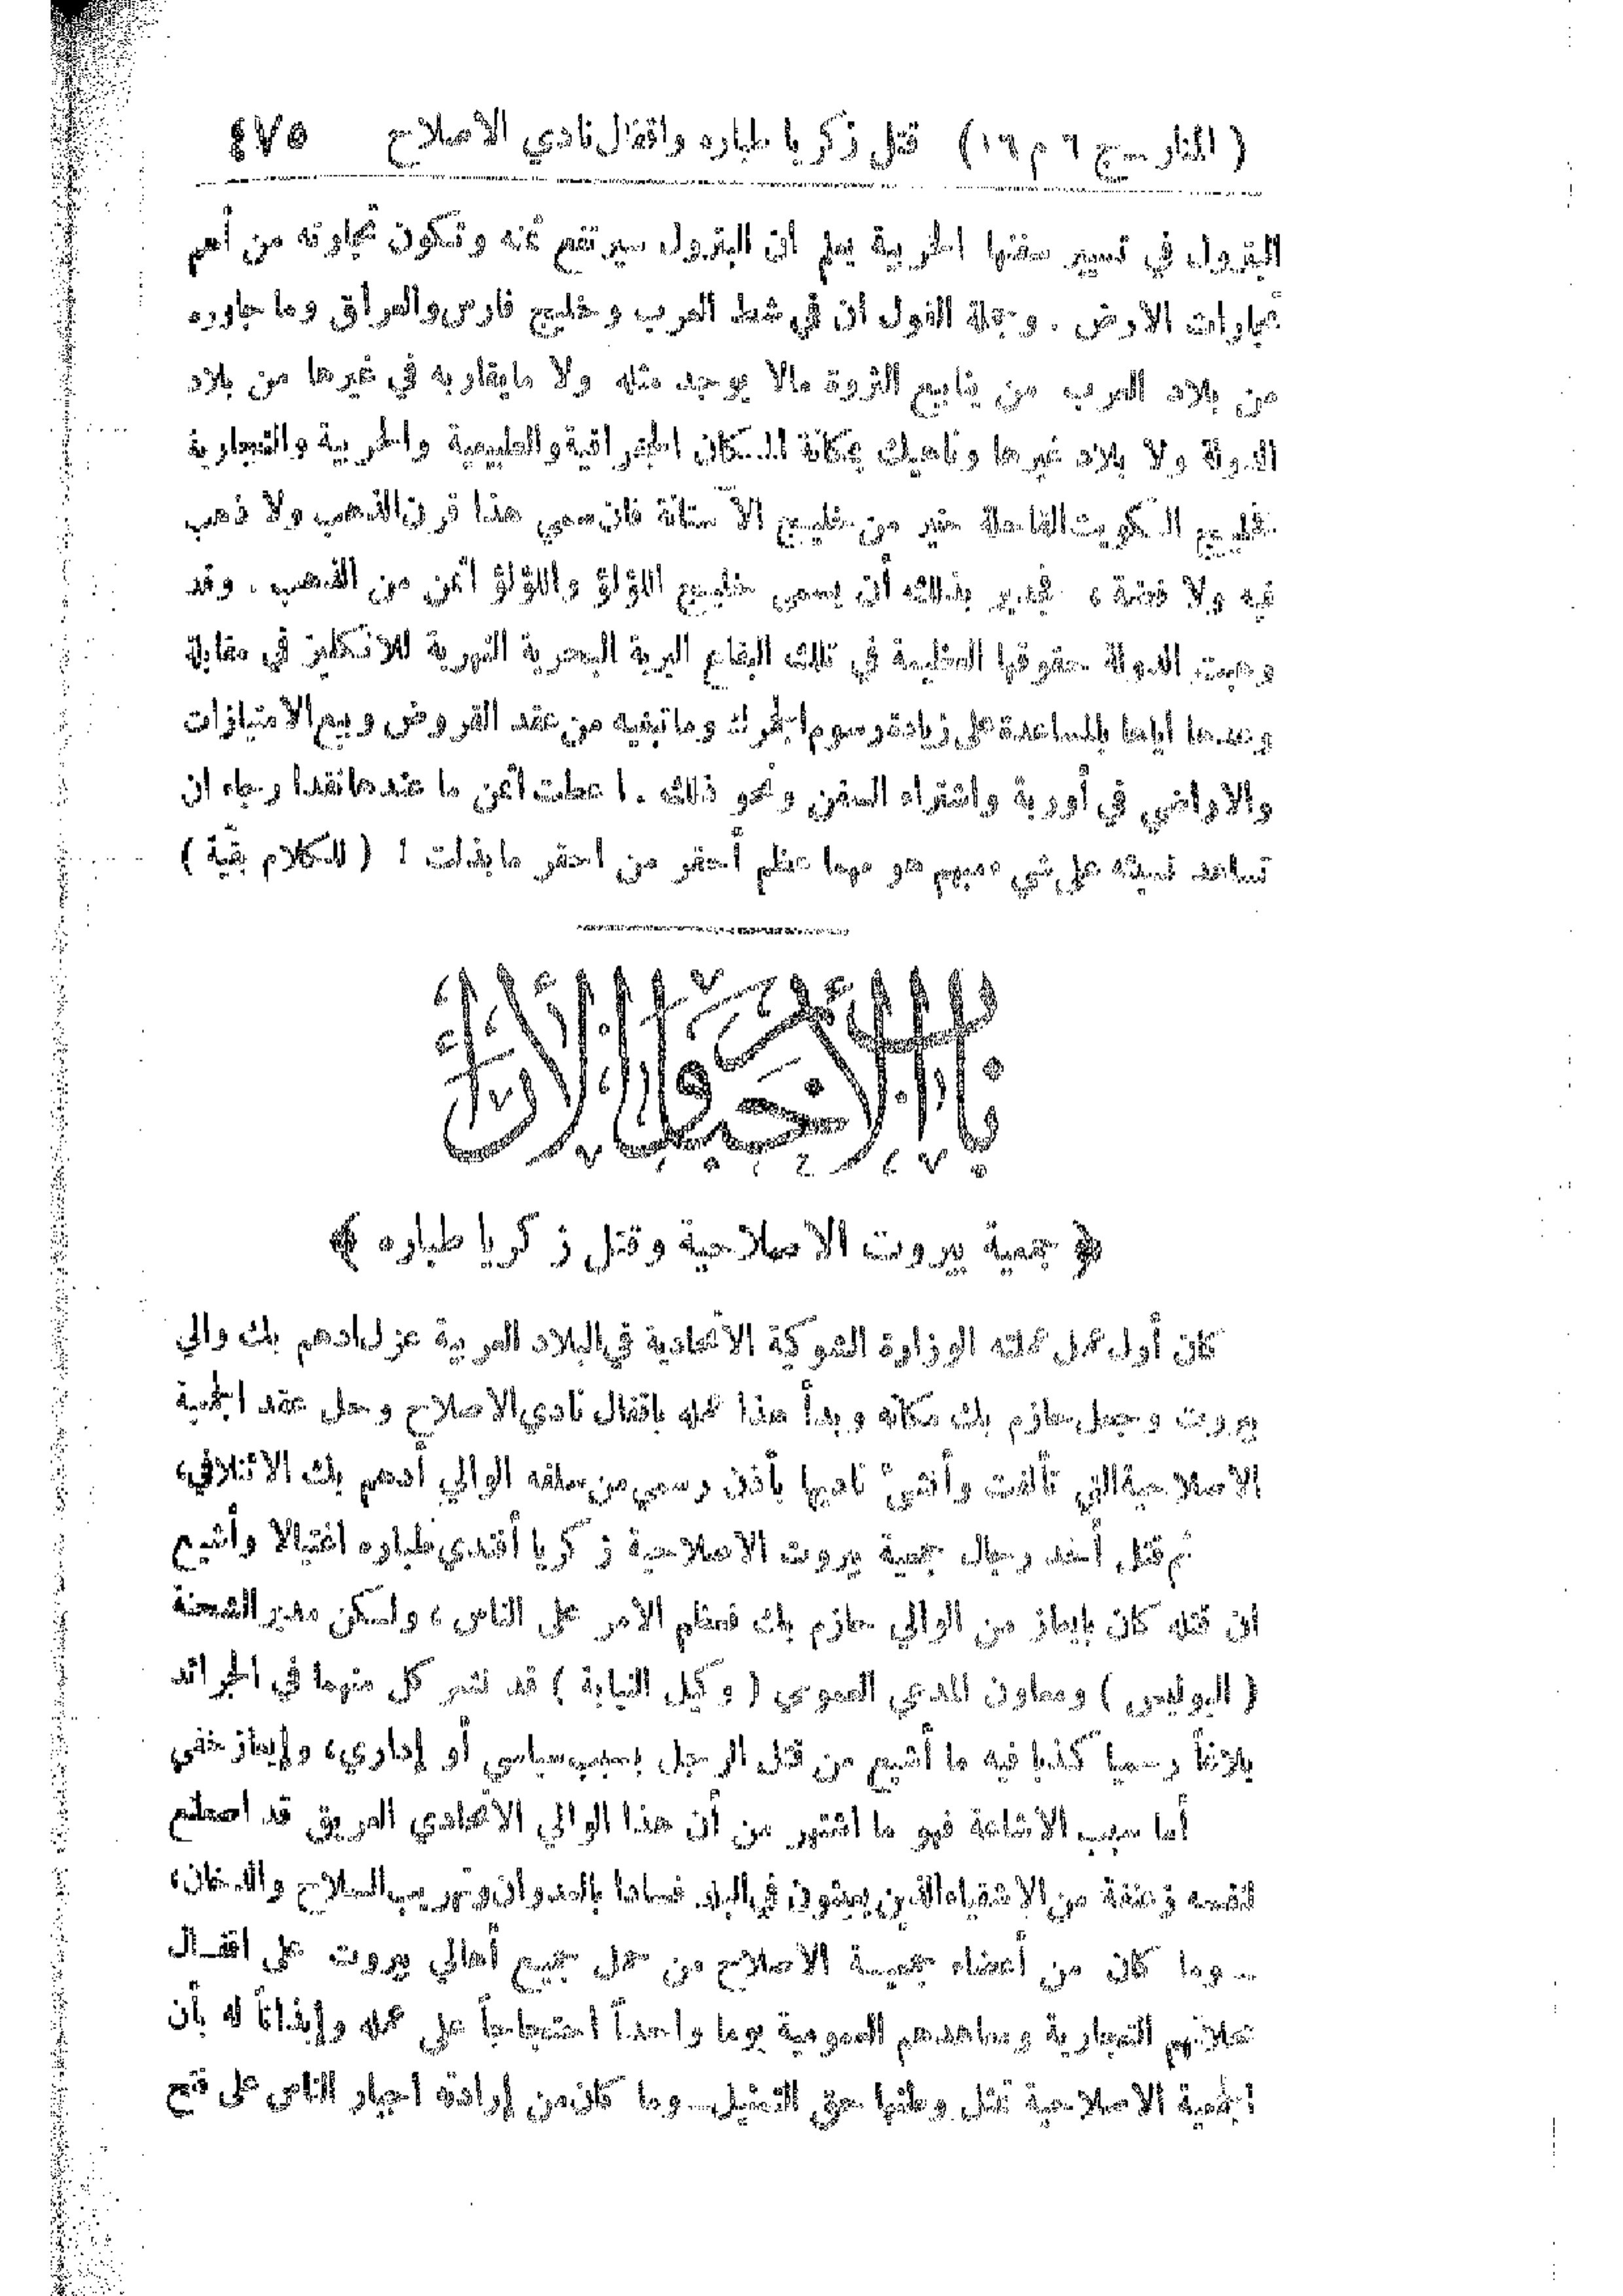 ( المنار ـ ج ٦ م ١٦ ) قتل زكريا طباره واقفال نادي الاصلاح ٤٧٥
البترول في تسيير سفنها الحربية يعلم ان البترول سيرتفع ثمنه وتكون تجارته من أهم
تجارات الارض . وجملة القول ان في شط العرب وخليج فارس والعراق وما جاوره
من بلاد العرب من ينابيع الثروة مالا يوجد مثله ولا ما يقاربه في غيرها من بلاد
الدولة ولا بلاد غيرها وناهيك بمكانة المكان الجغرافية والطبيعية والحربية والتجارية
فخليج الكويت القاحلة خير من خليج الآستانة فان سمي هذا قرن الذهب ولا ذهب
فيه ولا فضة ، فجدير بذلك أن يسمى خليج اللؤلؤ واللؤلؤ أثمن من الذهب . وقد
وهبت الدولة حقوقها العظيمة في تلك البقاع البرية البحرية النهرية للانكليز في مقابلة
وعدها اياها بالمساعدة على زيادة رسوم الجمرك وما تبغيه من عقد القروض وبيع الامتيازات
والاراضي في أوربة واشتراء السفن ونحو ذلك . اعطت أثمن ما عندها نقدا رجاء ان
تساعد نسيئة على شيء مبهم هو مهما عظم أحقر من احقر ما بذلت ! ( للكلام بقية )
باب الاخبار والآراء
﴿ جمعية بيروت الاصلاحية وقتل زكريا طباره ﴾
كان أول عمل عملته الوزارة الشوكتية الاتحادية في البلاد العربية عزل ادهم بك والي
بيروت وجعل حازم بك مكانه وبدأ هذا عمله باقفال نادي الاصلاح وحل عقد الجمعية
الاصلاحية التي تألفت وأنشئ ناديها بأذن رسمي من سلفه الوالي أدهم بك الائتلافي ،
ثم قتل أحد رجال جمعية بيروت الاصلاحية زكريا أفندي طباره اغتيالا وأشيع
ان قتله كان بايعاز من الوالي حازم بك فعظم الامر على الناس ، ولكن مدير الشحنة
( البوليس ) ومعاون المدعي العمومي ( وكيل النيابة ) قد نشر كل منهما في الجرائد
بلاغاً رسميا كذبا فيه ما أشيع من قتل الرجل بسبب سياسي أو إداري ، وإيعاز خفي
أما سبب الاشاعة فهو ما اشتهر من أن هذا الوالي الاتحادي العريق قد اصطنع
لنفسه زعنفة من الاشقياء الذين يعيثون في البلد فسادا بالعدوان وتهريب السلاح والدخان ،
ـ وما كان من أعضاء جمعية الاصلاح من حمل جميع أهالي بيروت على اقفال
محلاتهم التجارية ومعاهدهم العمومية يوما واحداً احتجاجاً على عمله وإيذاناً له بأن
الجمعية الاصلاحية تمثل وطنها حق التمثيل ـ وما كان من إرادته اجبار الناس على فتح